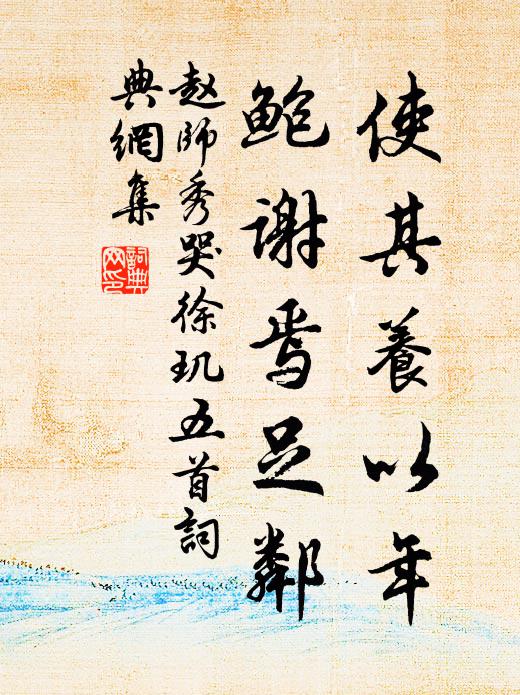 使其養以年
鮑謝焉足鄰
趙師秀哭徐玑五首詞
典網集
詞典
网印